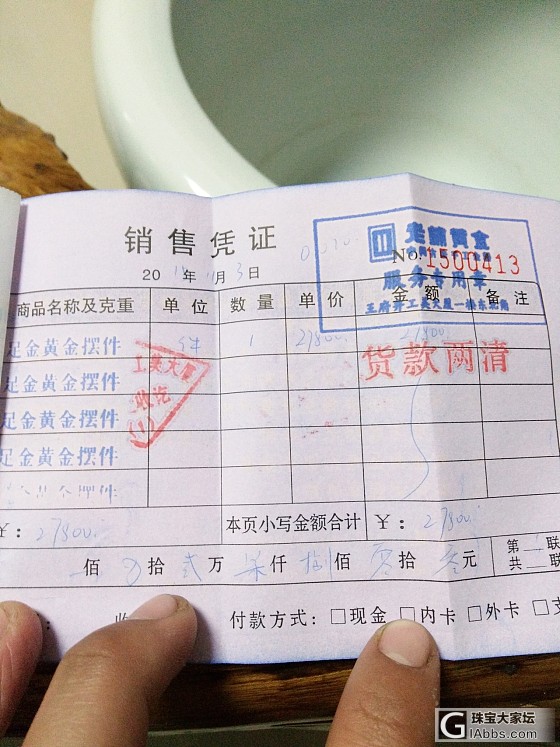 销售凭证
老铺黄金
No.1500413
20 年 月3日
服务专用章
王府井工美大厦一楼东北角
商品名称及克重 单位 数量 单价 金额 备注
足金黄金摆件 件 1 27800. 27800.
货款两清
足金黄金摆件
工美大厦
收讫
(1)
足金黄金摆件
足金黄金摆件
足金黄金摆件
¥: 27800. 本页小写金额合计 ¥: 27800.
佰 拾 贰万 柒仟 捌佰 零拾 元
第 联
共 联
付款方式: □现金 □内卡 □外卡 □支
珠宝大家坛
LAbbs.com